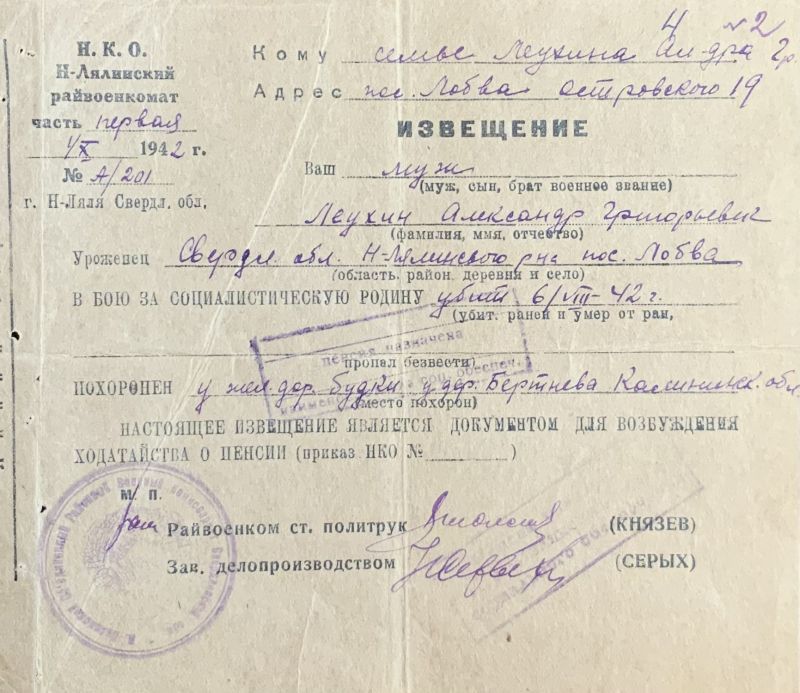 4 №2
Н. К. О.
Н-Лялинский
райвоенкомат
часть первая
4/X 1942 г.
№ А/201
г. Н-Ляля Свердл. обл,
Кому семье Леухина Ал-дра Гр.
Адрес пос. Лобва Островского 19
ИЗВЕЩЕНИЕ
Ваш муж
(муж, сын, брат военное звание)
Леухин Александр Григорьевич
(фамилия, имя, отчество)
Уроженец Свердл. обл. Н-Лялинского р-на пос. Лобва
(область, район, деревня и село)
В БОЮ ЗА СОЦИАЛИСТИЧЕСКУЮ РОДИНУ убит 6/VIII-42 г.
(убит, ранен и умер от ран,
пропал безвести)
пенсия назначена
обеспеч.
ПОХОРОНЕН у жел. дор. будки у дер. Бертнева Калининск. обл.
(место похорон)
НАСТОЯЩЕЕ ИЗВЕЩЕНИЕ ЯВЛЯЕТСЯ ДОКУМЕНТОМ ДЛЯ ВОЗБУЖДЕНИЯ
ХОДАТАЙСТВА О ПЕНСИИ (приказ НКО № )
М. П.
Райвоенком ст. политрук (КНЯЗЕВ)
Зав. делопроизводством (СЕРЫХ)